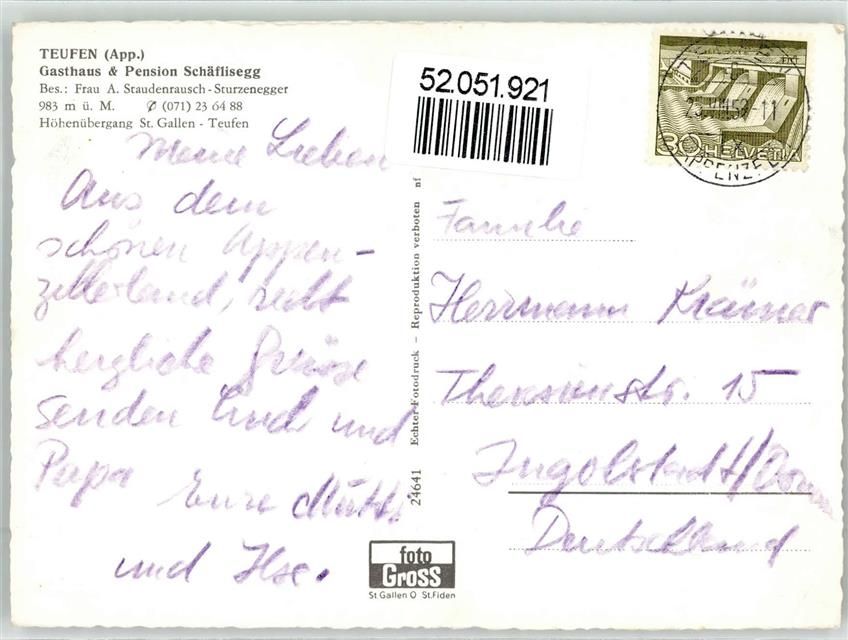 TEUFEN (App.)
Gasthaus & Pension Schäflisegg
Bes.: Frau A. Staudenrausch-Sturzenegger
983 m ü. M. ✆ (071) 23 64 88
Höhenübergang St. Gallen - Teufen
Meine Lieben
Aus dem
schönen Appen-
zellerland, recht
herzliche Grüsse
senden Euch und
Papa
Eure Mutti
und Ilse.
52.051.921
30 HELVETIA
Echter Fotodruck - Reproduktion verboten nf
24641
Familie
Herrmann Krämer
Theresienstr. 15
Ingolstadt/Donau
Deutschland
foto
Gross
St Gallen O St. Fiden